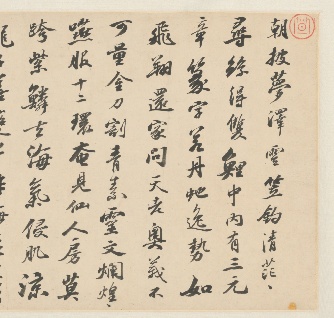 朝披夢澤雲笠釣清茫〻
尋絲得雙鯉中内有三元
章篆字若丹虵逸勢如
飛翔還家問天老奧義不
可量金刀割青素靈文爛煌〻
嚥服十二環奄見仙人房莫
跨紫鱗去海氣侵肌涼